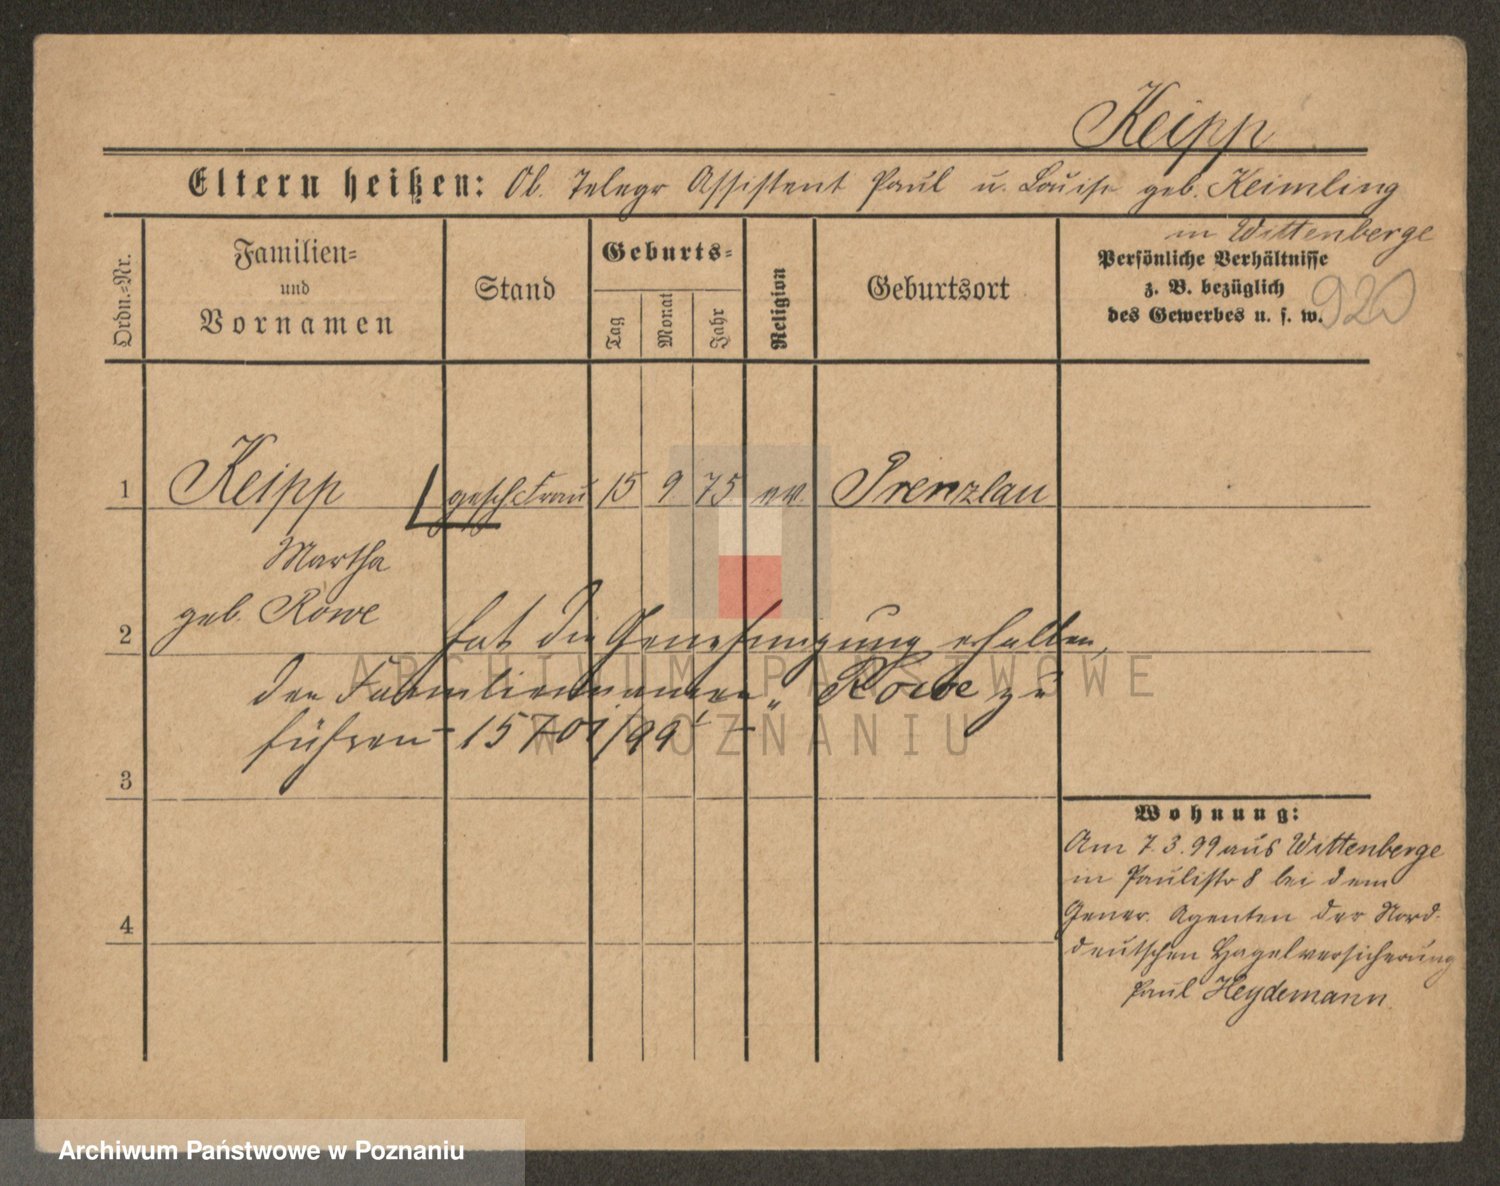 Keipp
Eltern heißen: Ob. Telegr Assistent Paul u. Louise geb. Keimling
in Wittenberge
Ordn.-Nr.
Familien-
und
Vornamen
Stand
Geburts-
Tag
Monat
Jahr
Religion
Geburtsort
Persönliche Verhältnisse
z. B. bezüglich
des Gewerbes u. s. w.
920
1 Keipp gesch. Frau 15 9 75 ev. Prenzlau
Martha
geb. Rowe
2 hat die Genehmigung erhalten,
den Familiennamen „Rowe zu
führen - 15701/99 -
3
4
Wohnung:
Am 7.3.99 aus Wittenberge
in Paulistr 8 bei dem
Gener. Agenten der Nord-
deutschen Hagelversicherung
Paul Heydemann.
ARCHIWUM PAŃSTWOWE
W POZNANIU
Archiwum Państwowe w Poznaniu